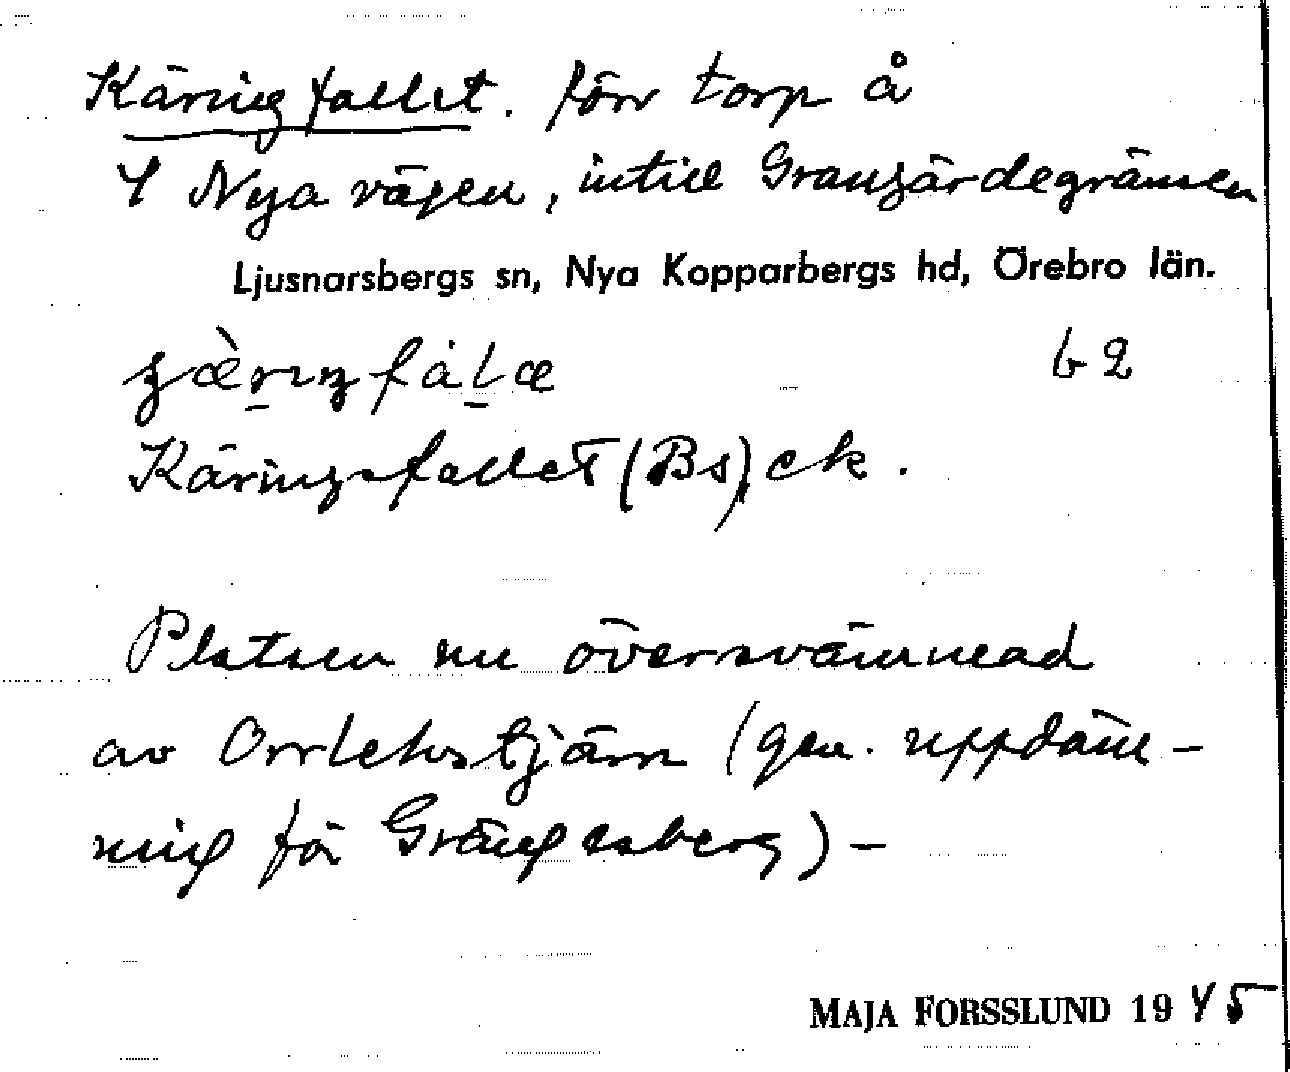 Käringfallet. förr torp å
4 Nya vägen, intill Grangärdegränsen
Ljusnarsbergs sn, Nya Kopparbergs hd, Örebro län.
b 2
Käringsfallet (Bs) ek.
Platsen nu översvämmad
av Orrlekstjärn (gen. uppdäm-
ning för Grängesberg) –
MAJA FORSSLUND 1945